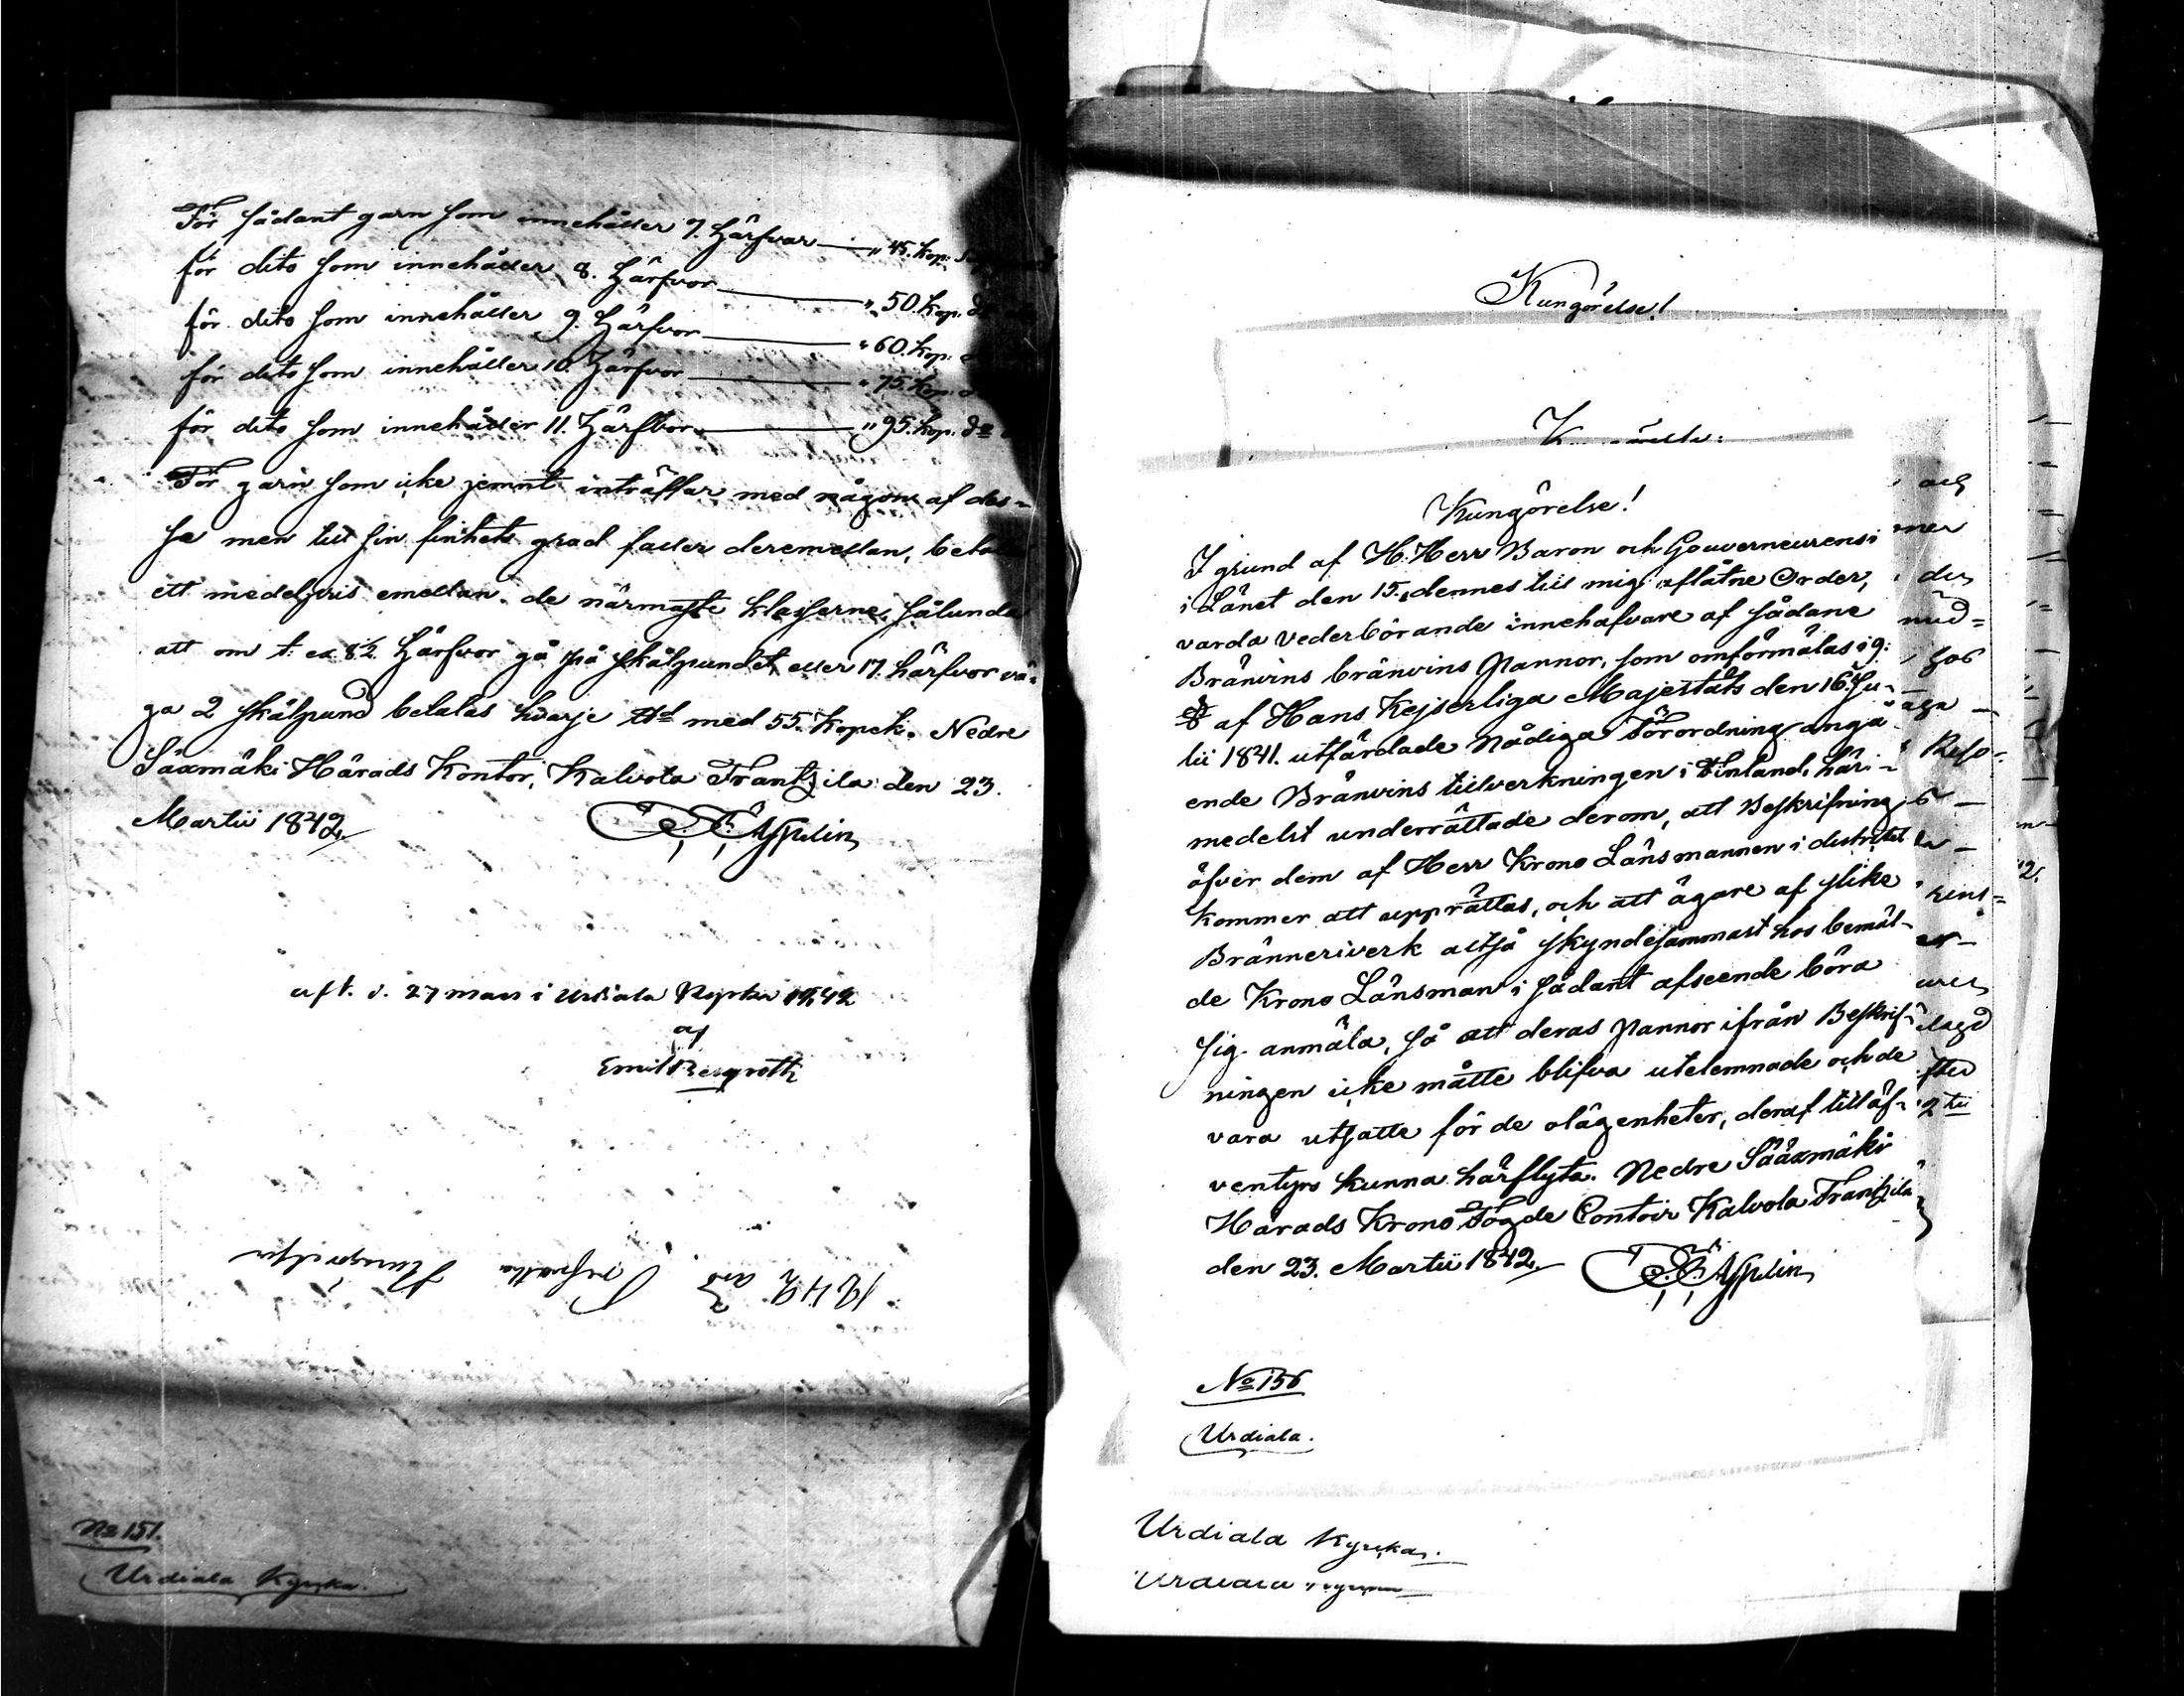 För sådant garn som innehåller 7. Härfvor — " 45. Kop:
för dito som innehåller 8. Härfvor — " 50. Kop. do
för dito som innehåller 9. Härfvor — " 60. Kop:
för dito som innehåller 10. Härfvor — " 75. Kop.
för dito som innehåller 11. Härfvor — " 95. Kop. do
För garn som icke jemnt inträffar med någon af des-
sa men till sin finhets grad faller deremellan, betalas
ett medelpris emellan de närmaste klasserne, sålunda
att om t. ex 8½ Härfvor gå på skålpundet, eller 17. härfvor vä-
ga 2 skålpund betalas hvarje ℔d med 55. Kopek. Nedre
Sääxmäki Härads Kontor, Kalvola Frantzila den 23.
Martii 1842
Asplin
upl. d. 27 mars i Urdiala Kyrka 1842
af
Emil Bergroth
1842 ars
No 151.
Urdiala Kyrka.
Kungörelse!
Kungörelse!
I grund af H. Herr Baron och Gouverneurens i
i Länet den 15. dennes till mig aflåtne Order,
varda Vederbörande innehafvare af sådane
Bränvins bränvins Pannor, som omförmälas i 9:
§ af Hans Kejserliga Majestäts den 16. Ju-
lii 1841. utfärdade Nådiga Förordning angå-
ende Bränvins tillverkningen i Finland, häri-
medelst underrättade derom, att Beskrifning
öfver dem af Herr Krono Länsmannen i districtet
kommer att upprättas, och att ägare af slike
Bränneriverk altså skyndesammast hos bemäl-
de Krono Länsman i sådant afseende böra
sig anmäla, så att deras Pannor ifrån Beskrif-
ningen icke måtte blifva utelemnade och de
vara utsatte för de olägenheter, deraf till äf-
ventyrs kunna härflyta. Nedre Sääxmäki
Härads Krono Fogde Contoir Kalvola Frantzila
den 23. Martii 1842
Asplin
No 156
Urdiala.
Urdiala Kyrka.